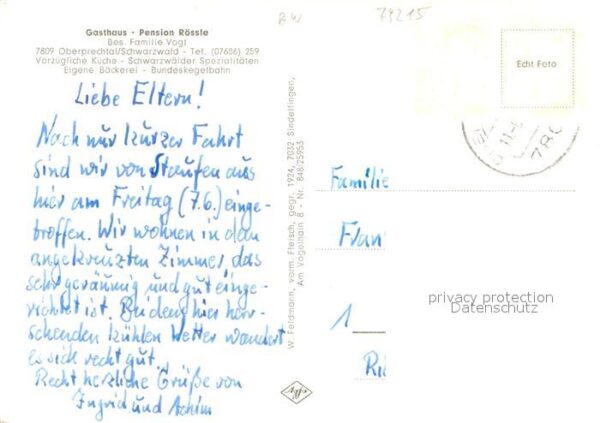 Gasthaus - Pension Rössle
Bes. Familie Vogl
7809 Oberprechtal/Schwarzwald - Tel. (07686) 259
Vorzügliche Küche - Schwarzwälder Spezialitäten
Eigene Bäckerei - Bundeskegelbahn
Liebe Eltern!
Nach nur kurzer Fahrt
sind wir von Staufen aus
hier am Freitag (7.6.) einge-
troffen. Wir wohnen in dem
angekreuzten Zimmer, das
sehr geräumig und gut einge-
richtet ist. Bei dem hier herr-
schenden kühlen Wetter wandert
es sich recht gut.
Recht herzliche Grüße von
Ingrid und Achim
W. Feldmann, vorm. Fleisch, gegr. 1924, 7032 Sindelfingen,
Am Vogelhain 8 - Nr. 848/25953
Agfa
BW
79215
Echt Foto
780
Familie
Fran
1
Ri
privacy protection
Datenschutz